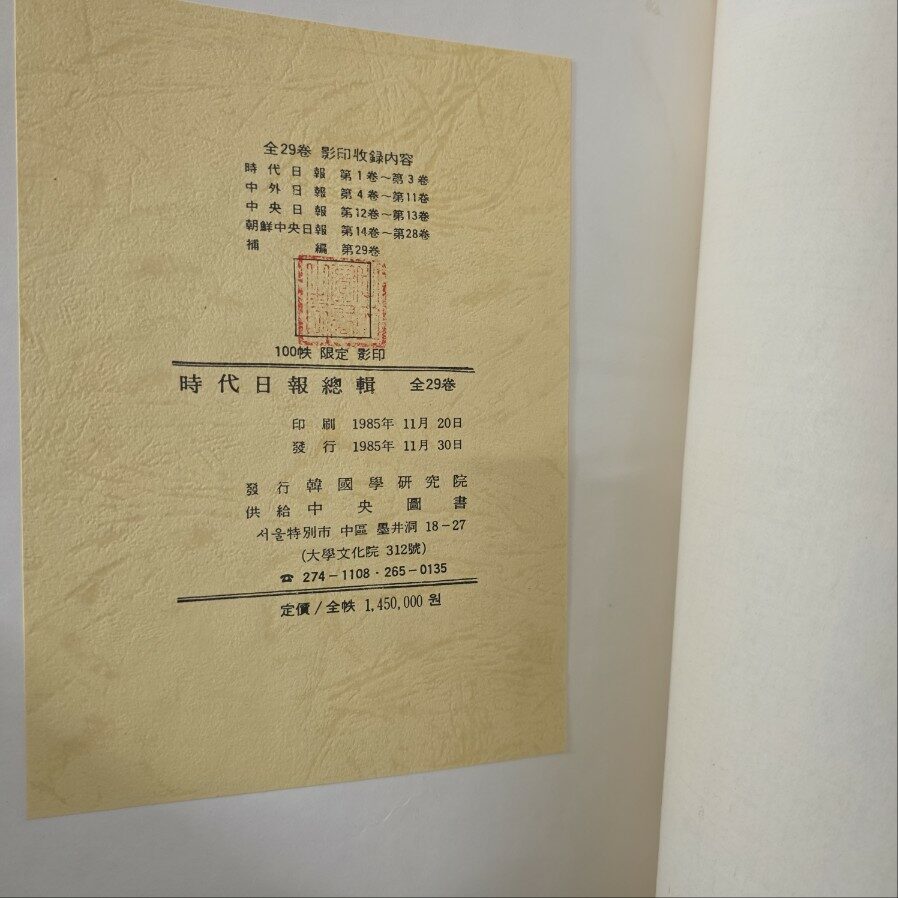 全29卷 影印收録內容
時代日報 第1卷~第3卷
中外日報 第4卷~第11卷
中央日報 第12卷~第13卷
朝鮮中央日報 第14卷~第28卷
補編 第29卷
100帙 限定 影印
時代日報總輯 全29卷
印刷 1985年 11月 20日
發行 1985年 11月 30日
發行 韓國學硏究院
供給 中央圖書
서울特別市 中區 墨井洞 18-27
(大學文化院 312號)
☎ 274-1108·265-0135
定價/全帙 1,450,000 원